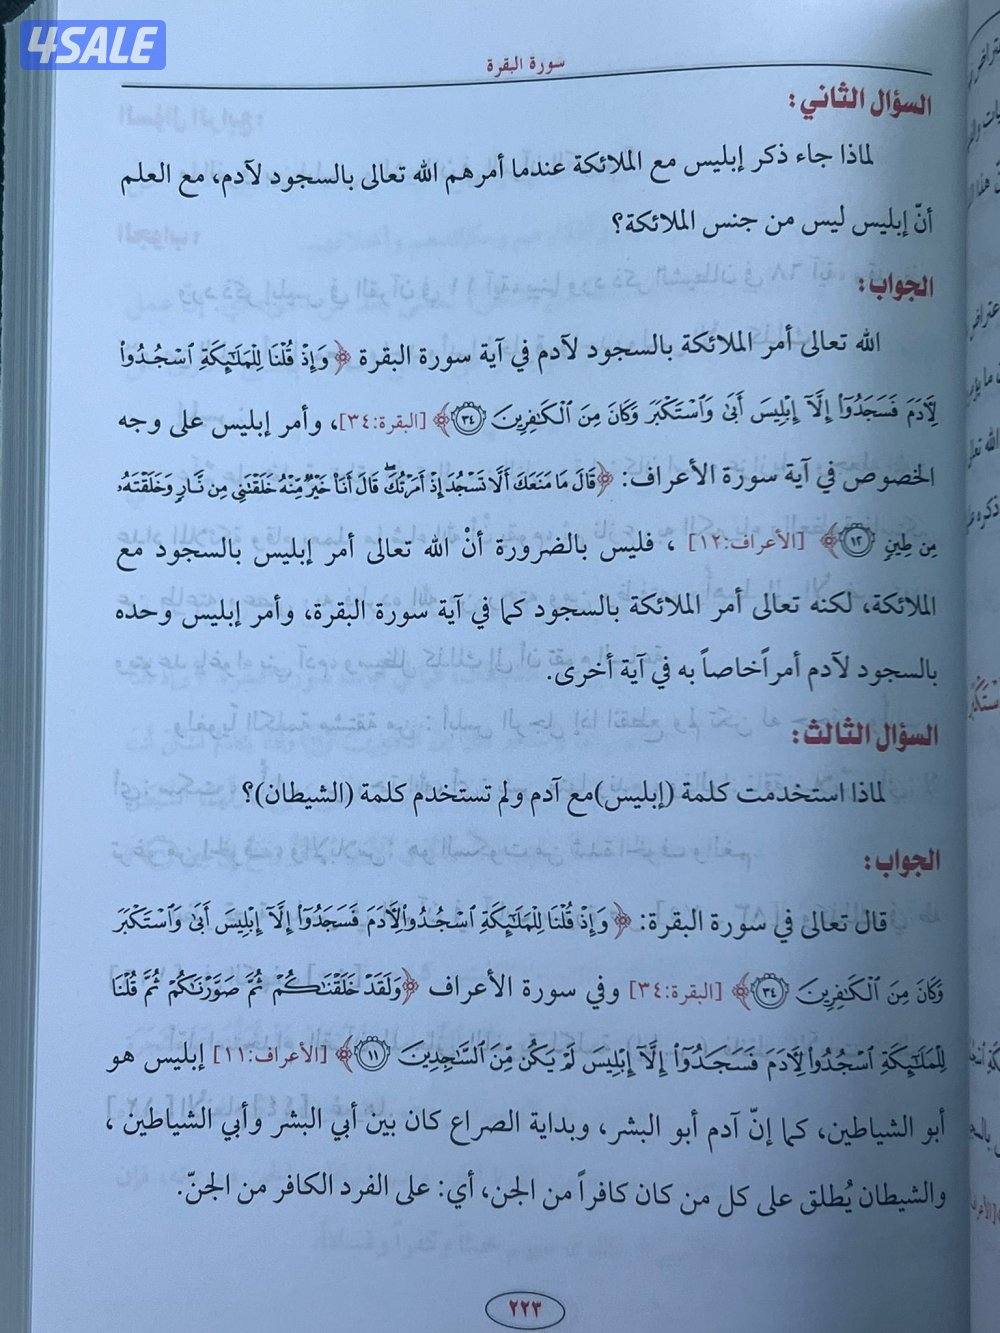 4SALE
سورة البقرة
السؤال الثاني:
لماذا جاء ذكر إبليس مع الملائكة عندما أمرهم الله تعالى بالسجود لآدم، مع العلم
أنّ إبليس ليس من جنس الملائكة؟
الجواب:
الله تعالى أمر الملائكة بالسجود لآدم في آية سورة البقرة ﴿وَإِذْ قُلْنَا لِلْمَلَٰٓئِكَةِ ٱسْجُدُوا۟
لِءَادَمَ فَسَجَدُوٓا۟ إِلَّآ إِبْلِيسَ أَبَىٰ وَٱسْتَكْبَرَ وَكَانَ مِنَ ٱلْكَٰفِرِينَ ٣٤﴾ [البقرة:٣٤]، وأمر إبليس على وجه
الخصوص في آية سورة الأعراف: ﴿قَالَ مَا مَنَعَكَ أَلَّا تَسْجُدَ إِذْ أَمَرْتُكَ ۖ قَالَ أَنَا۠ خَيْرٌ مِّنْهُ خَلَقْتَنِى مِن نَّارٍ وَخَلَقْتَهُۥ
مِن طِينٍ ١٢﴾ [الأعراف:١٢] ، فليس بالضرورة أنْ الله تعالى أمر إبليس بالسجود مع
الملائكة، لكنه تعالى أمر الملائكة بالسجود كما في آية سورة البقرة، وأمر إبليس وحده
بالسجود لآدم أمراً خاصاً به في آية أخرى.
السؤال الثالث:
لماذا استخدمت كلمة (إبليس)مع آدم ولم تستخدم كلمة (الشيطان)؟
الجواب:
قال تعالى في سورة البقرة: ﴿وَإِذْ قُلْنَا لِلْمَلَٰٓئِكَةِ ٱسْجُدُوا۟ لِءَادَمَ فَسَجَدُوٓا۟ إِلَّآ إِبْلِيسَ أَبَىٰ وَٱسْتَكْبَرَ
وَكَانَ مِنَ ٱلْكَٰفِرِينَ ٣٤﴾ [البقرة:٣٤] وفي سورة الأعراف ﴿وَلَقَدْ خَلَقْنَٰكُمْ ثُمَّ صَوَّرْنَٰكُمْ ثُمَّ قُلْنَا
لِلْمَلَٰٓئِكَةِ ٱسْجُدُوا۟ لِءَادَمَ فَسَجَدُوٓا۟ إِلَّآ إِبْلِيسَ لَمْ يَكُن مِّنَ ٱلسَّٰجِدِينَ ١١﴾ [الأعراف:١١] إبليس هو
أبو الشياطين، كما إنّ آدم أبو البشر، وبداية الصراع كان بين أبي البشر وأبي الشياطين ،
والشيطان يُطلق على كل من كان كافراً من الجن، أي: على الفرد الكافر من الجنّ.
٢٢٣